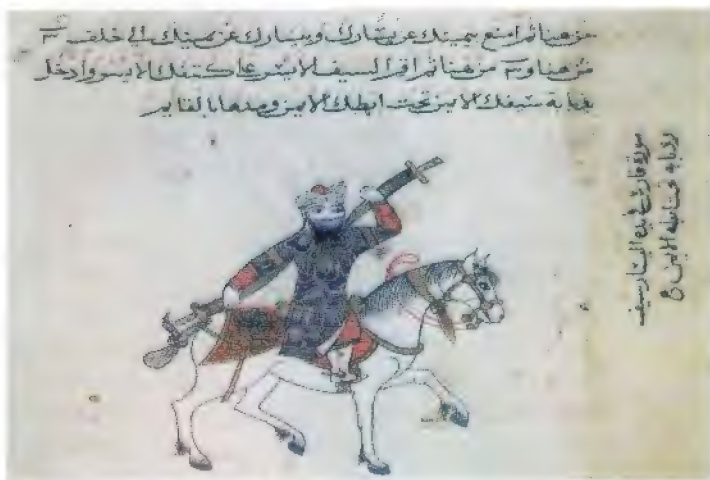 من هنا ثم امنع بيمينك عن يسارك وبيسارك عن يمينك الى خلف
من هنا و من هنا ثم اقرا السيف الايسر على كتفك الايسر وادخل
ذبابة سيفك الايمن تحت ابطك الايمن
صورة فارس في يده اليسار سيف
وذبابه تحت ابطه الايمن